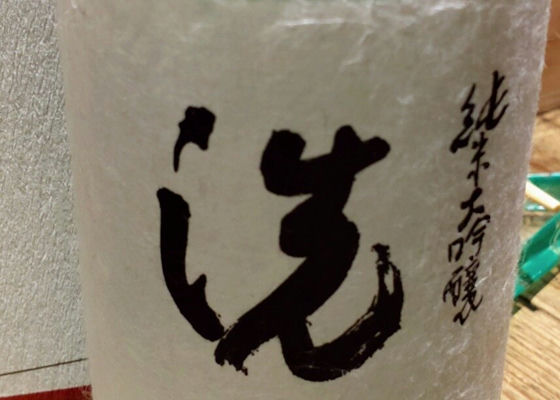 純米大吟醸
洗